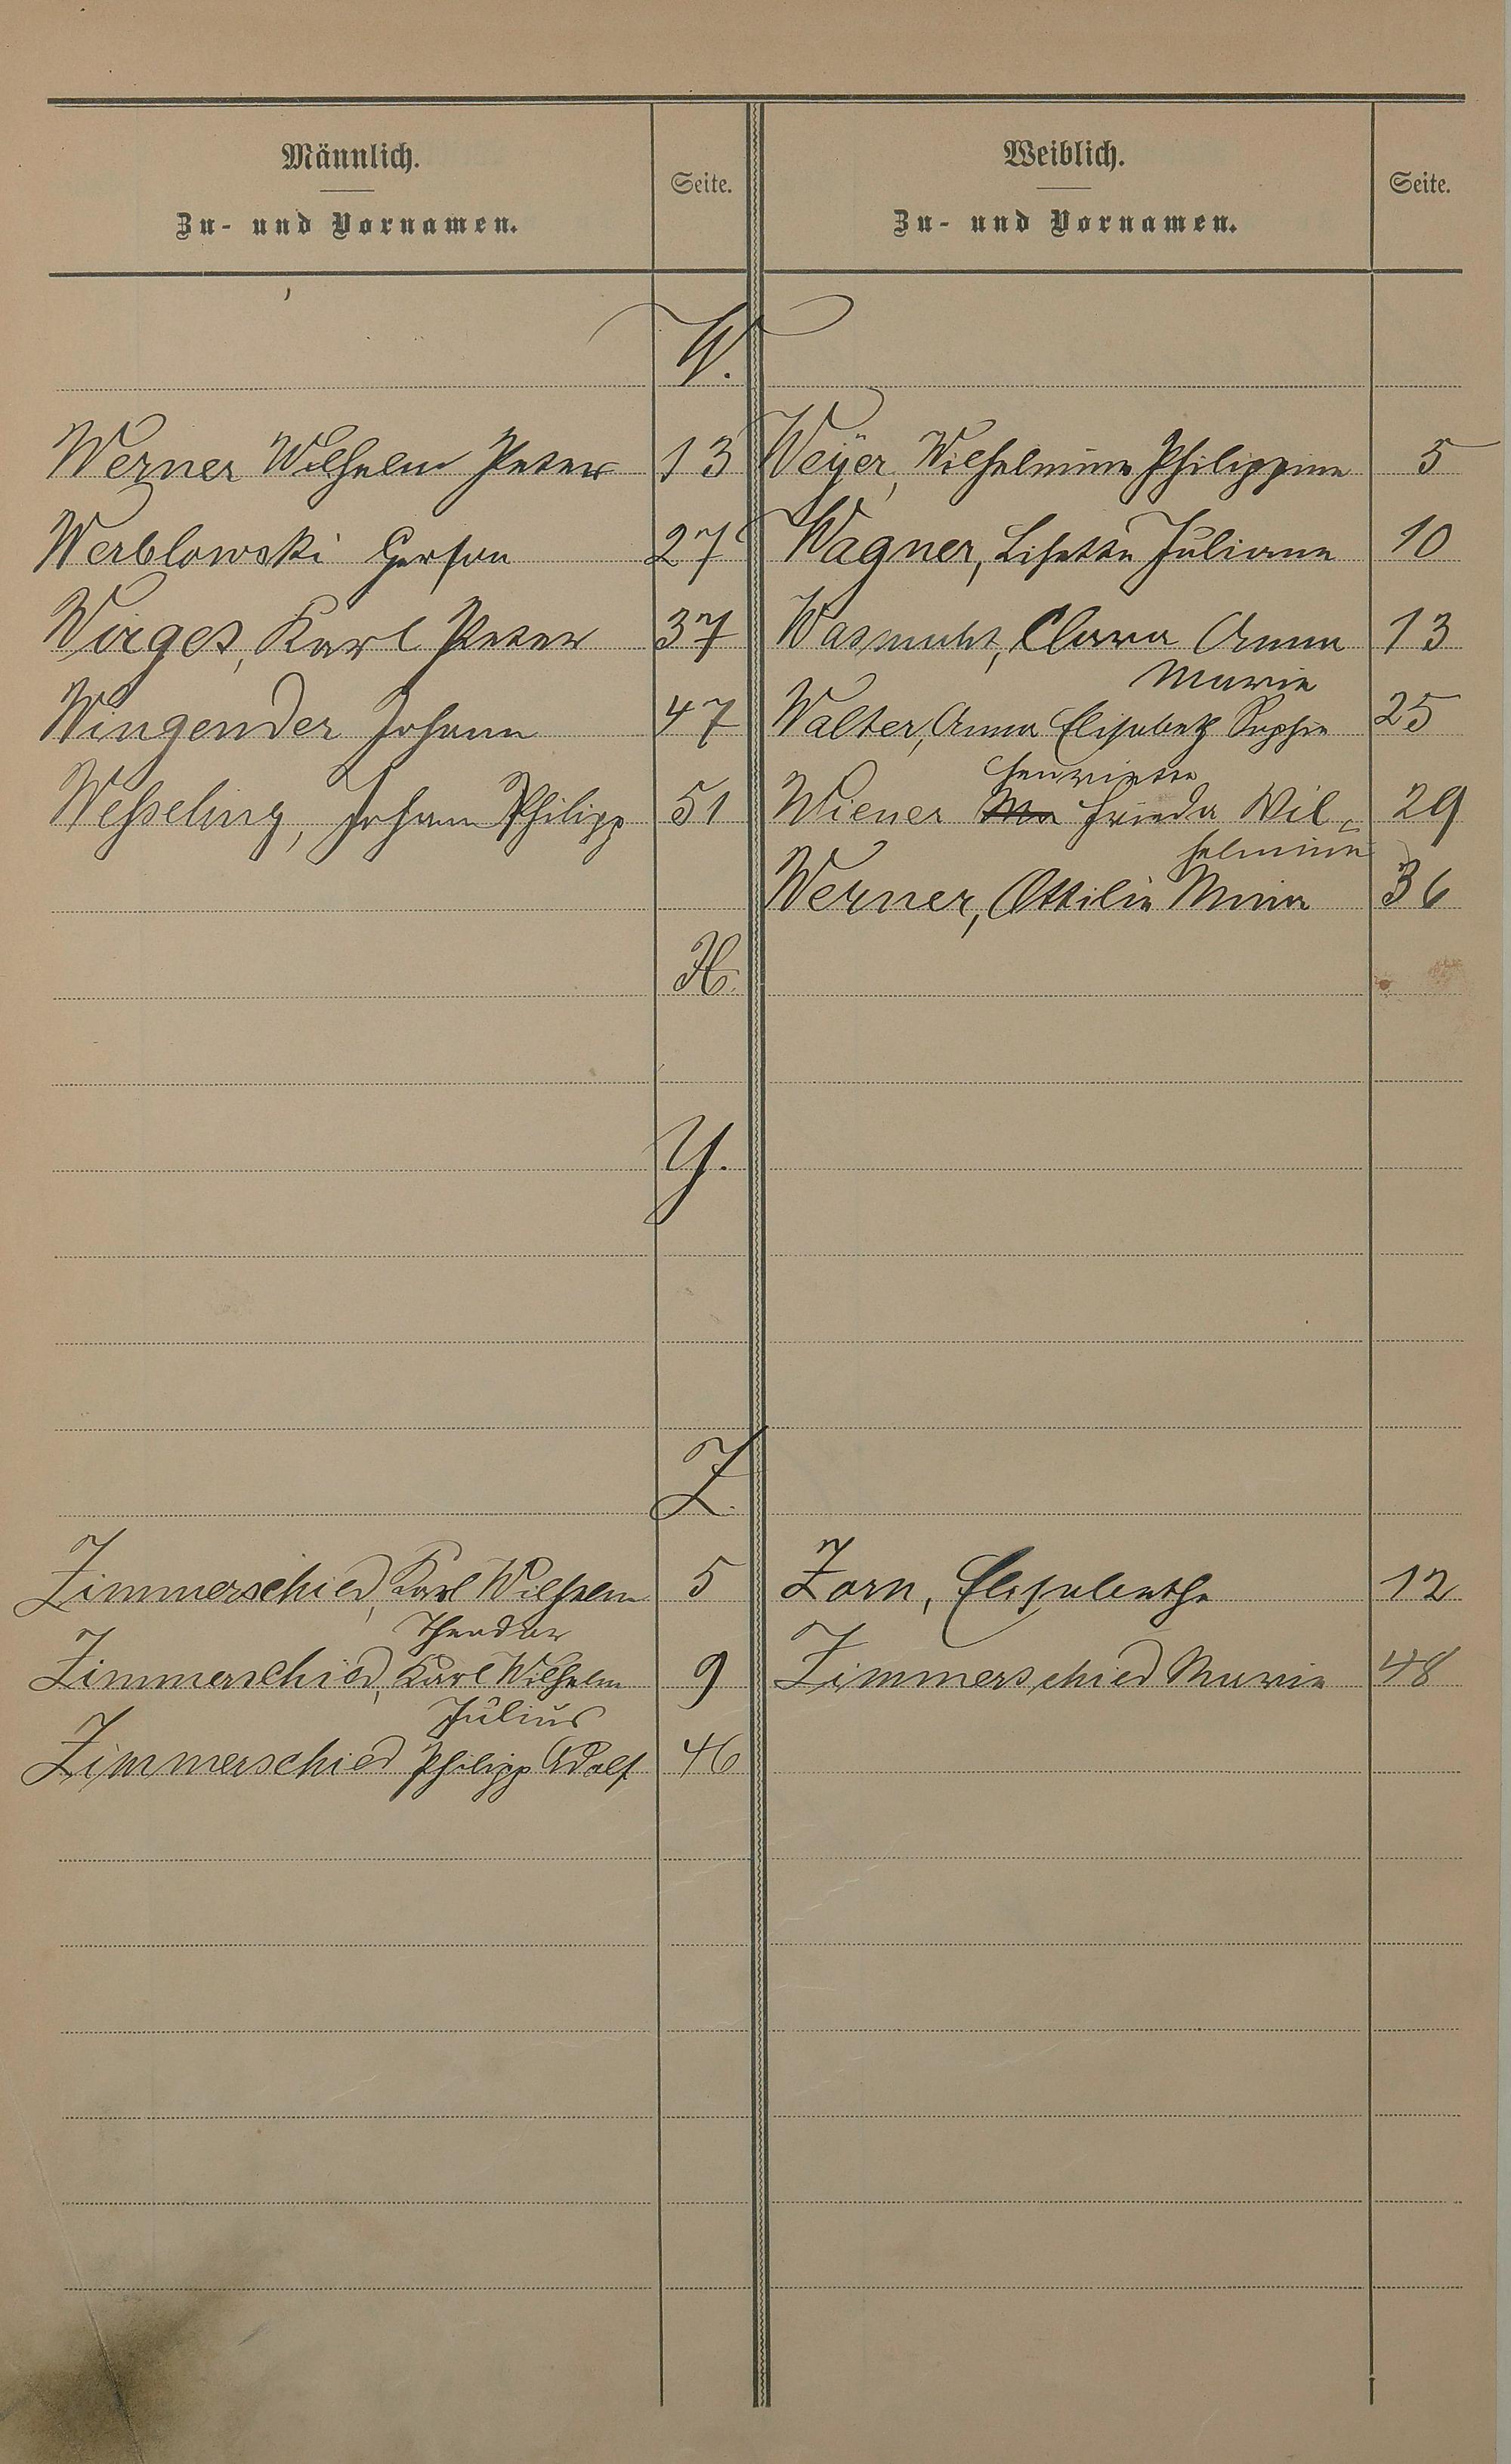 Männlich.
Zu- und Vornamen.
Seite.
Weiblich.
Zu- und Vornamen.
Seite.
W.
Werner Wilhelm Peter 13 Weÿer, Wilhelmine Philippine 5
Werblowski Gerson 27 Wagner, Lisette Juliane 10
Wirges, Karl Peter 37 Wasmuht, Clara Anna 13
Marie
Wingender Johann 47 Walter, Anna Elisabeth Sophie 25
Henriette
Wesseling, Johann Philipp 51 Wiener Ma Frieda Wil- 29
helmine
Werner, Ottilie Minna 36
X.
Y.
Z.
Zimmerschied, Karl Wilhelm 5 Zorn, Elisabetha 12
Theodor
Zimmerschied, Karl Wilhelm 9 Zimmerschied Marie 48
Julius
Zimmerschied Philipp Adolf 46